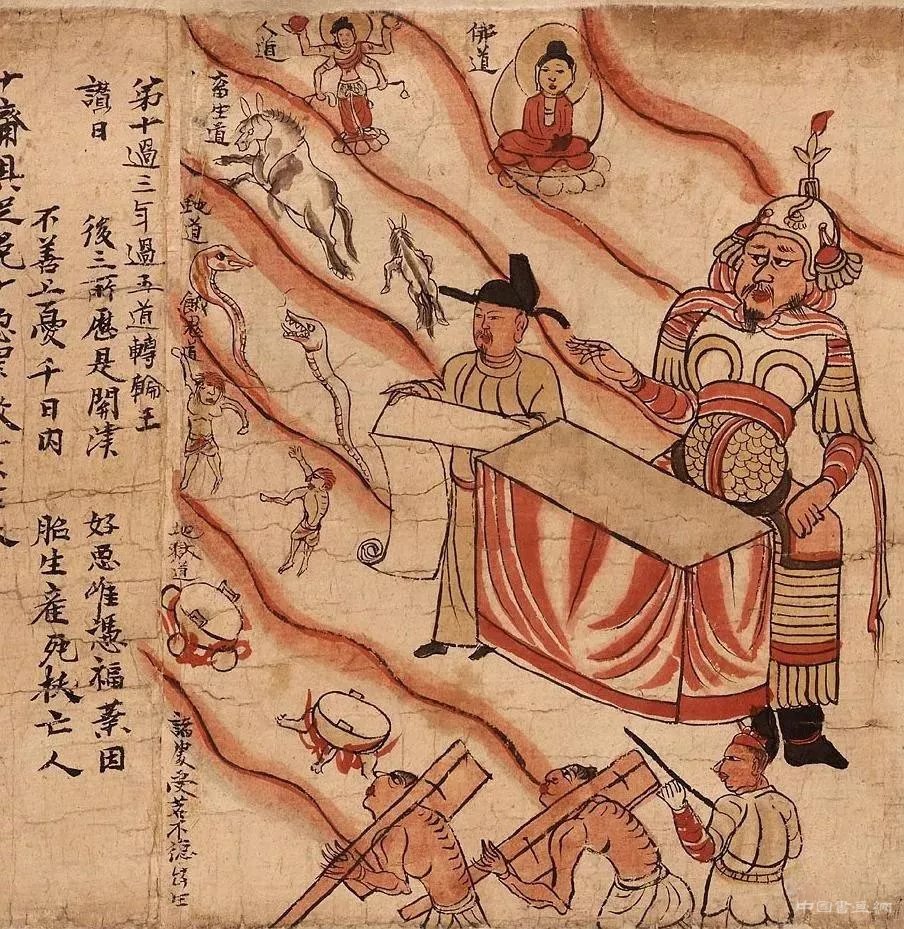 佛道
人道
畜生道
虵道
餓鬼道
地獄道
第十過三年過五道轉輪王
讃曰 後三所歷是開津 好惡唯憑福業因
不善上憂千日內 胎生產死亡人
十齋具足免十
中國書畫網